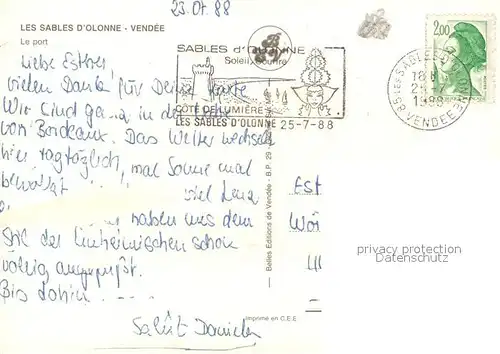 23.07.88
LES SABLES D'OLONNE - VENDÉE
Le port
Liebe Esther
vielen Dank für Deine Karte
Wir sind ganz in der Nähe
von Bordeaux. Das Wetter wechselt
hier tagtäglich, mal Sonne mal
bewölkt
viel
haben uns dem
Stil der Einheimischen schon
völlig angepaßt.
Bis dahin.....
Salût Daniela
SABLES d'OLONNE
Soleil, Sourire
CÔTE DE LUMIÈRE
LES SABLES D'OLONNE 25-7-88
2,00
85 LES SABLES D'
18 H
25-7
1988
VENDEE
Belles Editions de Vendée - B.P. 29
Imprimé en C.E.E.
Est
privacy protection
Datenschutz